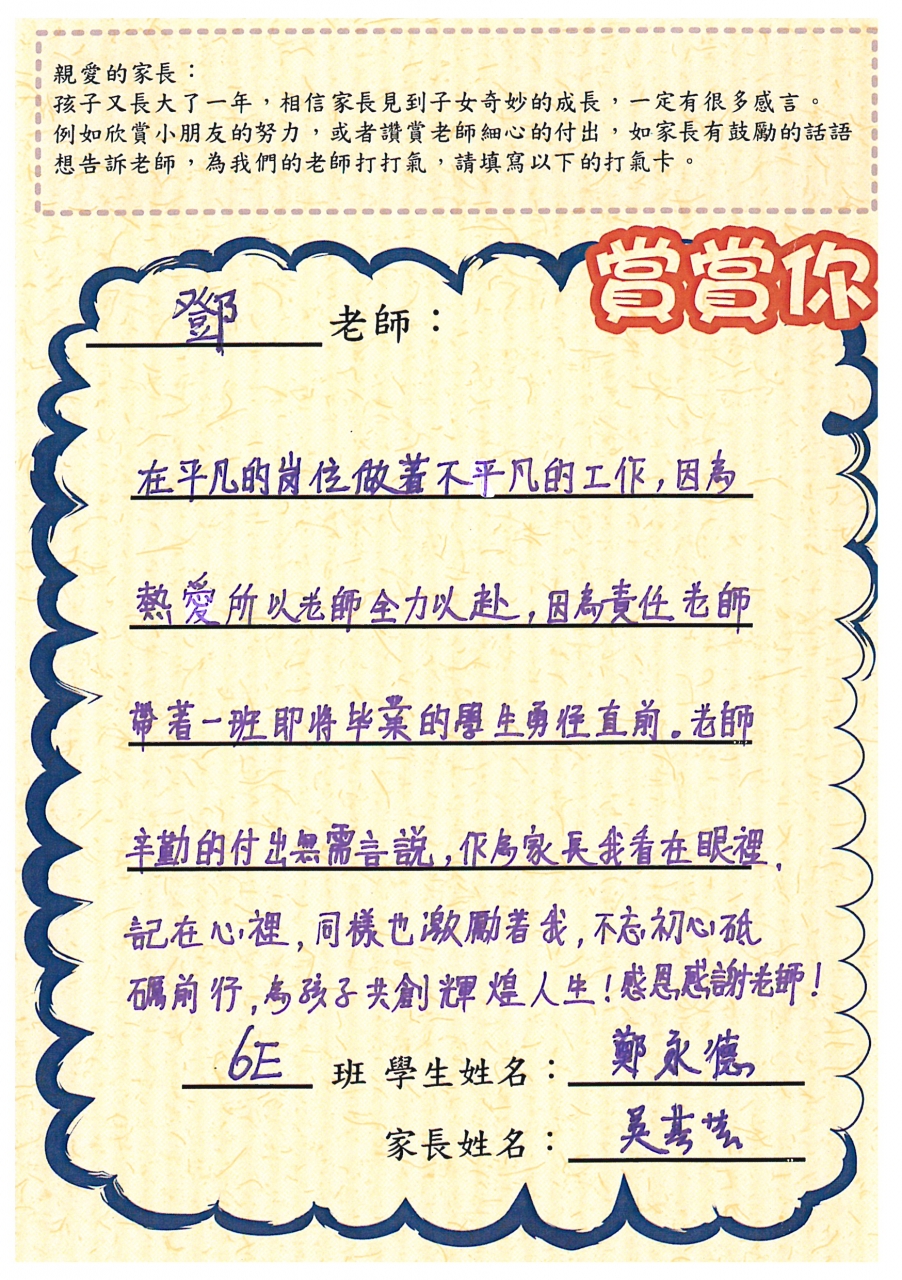 親愛的家長：
孩子又長大了一年，相信家長見到子女奇妙的成長，一定有很多感言。
例如欣賞小朋友的努力，或者讚賞老師細心的付出，如家長有鼓勵的話語
想告訴老師，為我們的老師打打氣，請填寫以下的打氣卡。
賞賞你
鄧 老師：
在平凡的岗位做着不平凡的工作，因為
熱愛所以老師全力以赴，因為責任老師
帶著一班即將毕業的學生勇往直前。老師
辛勤的付出無需言説，作為家長我看在眼裡，
記在心裡，同樣也激勵著我，不忘初心砥
礪前行，為孩子共創輝煌人生！感恩感謝老師！
6E 班 學生姓名：鄭永德
家長姓名：吳